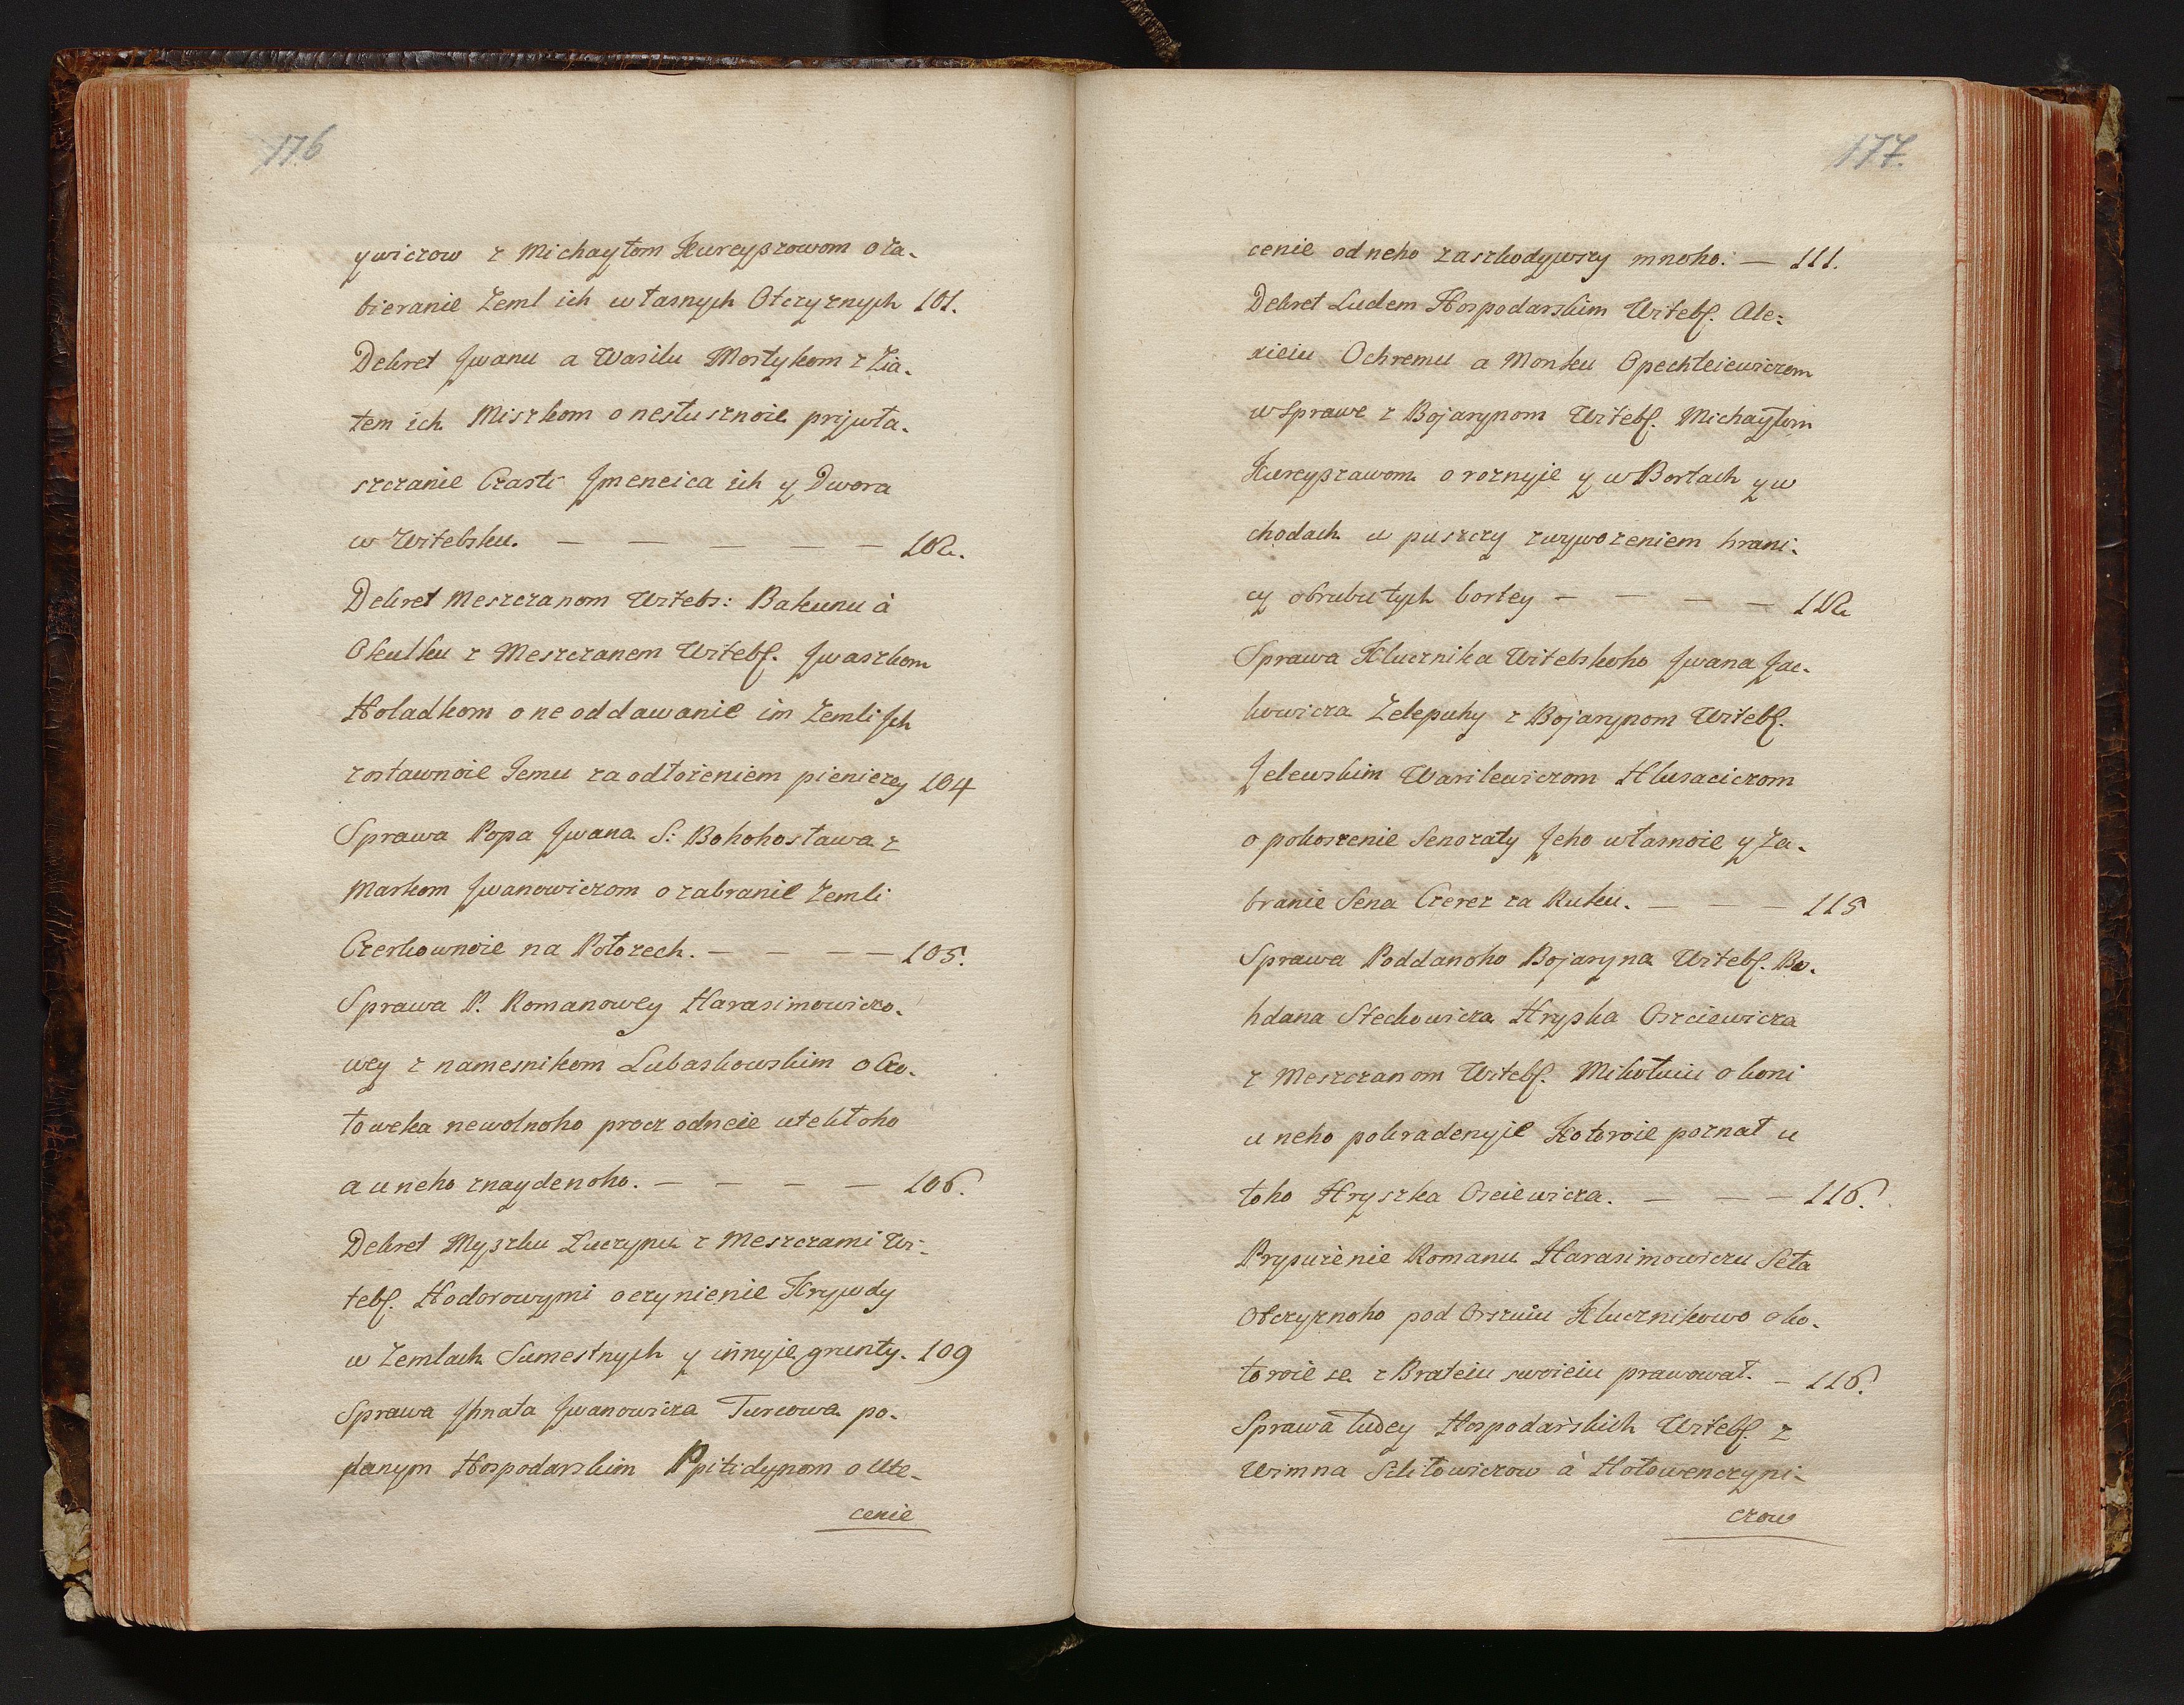 176
ywiczow z Michayłom Kureyszowom o Za-
bieranie Zeml ich własnych Otczyznych 101.
Dekret Jwanu a Wasilu Mostykom z Zia-
tem ich Miszkom o nesłusznoie prijwła-
szczanie Czasti Jmeneica ich y Dwora
w Witebsku. — — — — — 102.
Dekret Meszczanom Witebs: Bakunu à
Okulku z Meszczanem Witebs. Jwaszkom
Holadkom o ne oddawanie im Zemli Jch
zostawnoie Jemu za odłożeniem pieniezey 104
Sprawa Popa Jwana S: Bohohosława z
Markom Jwanowiczom o zabranie Zemli
Czerkownoie na Połozech. — — — — 105.
Sprawa P. Romanowey Harasimowiczo-
wey z namesnikom Lubaskowskim o Czo-
łoweka newolnoho procz odneie utekłoho
a u neho znaydenoho. — — — — 106.
Dekret Myszku Łuczynu z Meszczami Wi-
tebs. Hodorowymi o czynienie Krywdy
w Zemlach Sumestnych y innyie grunty. 109
Sprawa Jhnata Jwanowicza Turcowa po-
danym Hospodarskim Ppitidynom o Ute-
cenie
177.
cenie od neho zaszkodywszy mnoho. — 111.
Dekret Ludem Hospodarskim Witebs. Ale-
xieiu Ochremu a Monku Opechteiewiczom
w Sprawe z Bojarynom Witebs. Michayłom
Kureyszawom o roznyie y w Bortach y w
chodach w puszczy z wywożeniem hrani-
cy obrubu tych bortey — — — — 112
Sprawa Klucznika Witebskoho Jwana Jac-
kowicza Zelepuhy z Bojarynom Witebs.
Jelewskim Wasilewiczom Hlusaciczom
o pokoszenie Senozaty Jeho własnoie y Za-
branie Sena Czerez za Ruku. — — — 115
Sprawa Poddanoho Bojaryna Witebs. Bo-
hdana Steckowicza Hryszka Oszciewicza
z Meszczanom Witebs. Mikołuiu o koni
u neho pokradenyie Kotoroie poznał u
toho Hryszka Osciewicza. — — — 116.
Prypużenie Romanu Harasimowiczu Seła
Otczyznoho pod Orszuiu Klucznikowo o ko-
toroie se z Brateiu swoieiu prawował. — 116.
Sprawa ludey Hospodarskich Witebs. z
Wimna Szkłowiczow à Hołowenczyni-
czow